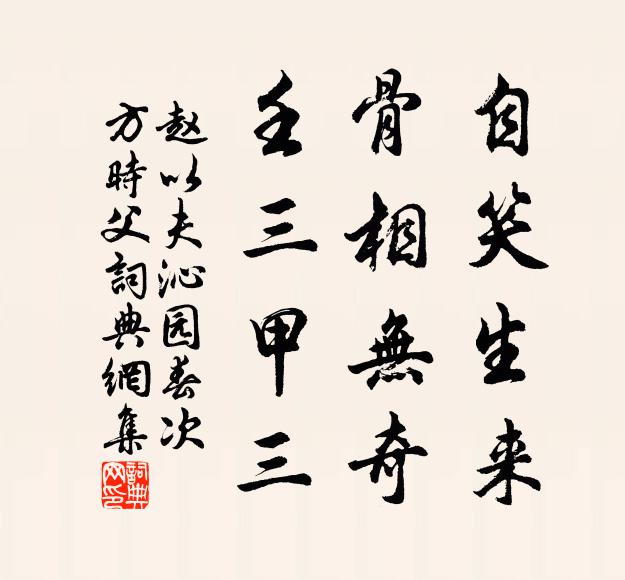 自笑生来
骨相無奇
壬三甲三
赵以夫沁园春次
方時父詞典網集
詞典网印